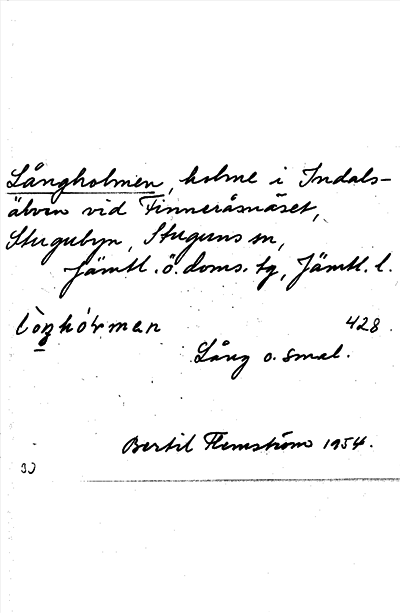 Långholmen, holme i Indals-
älven vid Finneråsnäset,
Stugubyn, Stuguns sn,
Jämtl. ö. doms. tg, Jämtl. l.
428.
Lång o. smal.
Bertil Flemström 1954.